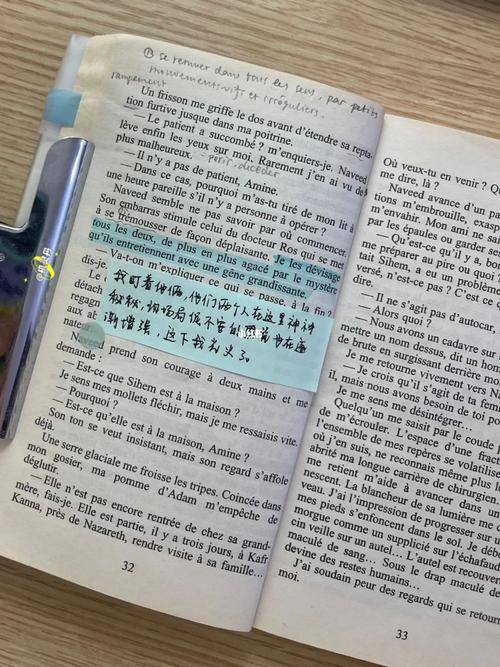 ① se remuer dans tous les sens, par petits
mouvements vifs et irréguliers.
rampement
Un frisson me griffe le dos avant d'étendre sa repta-
tion furtive jusque dans ma poitrine.
— Le patient a succombé ? m'enquiers-je. Naveed
lève enfin les yeux sur moi. Rarement j'en ai vu de
plus malheureux.
périr, décéder
— Il n'y a pas de patient, Amine.
— Dans ce cas, pourquoi m'as-tu tiré de mon lit à
une heure pareille s'il n'y a personne à opérer ?
Naveed semble ne pas savoir par où commencer.
Son embarras stimule celui du docteur Ros qui se met
à se trémousser de façon déplaisante. Je les dévisage
tous les deux, de plus en plus agacé par le mystère
qu'ils entretiennent avec une gêne grandissante.
— Va-t-on m'expliquer ce qui se passe, à la fin ?
dis-je.
Le
détach
regagn
aux ab
nateur
我盯着他俩,他们两个人在这里神神
秘秘,
不安的 也在逐
渐增强,这下我光火了。
小红书
Naveed prend son courage à deux mains et me
demande :
— Est-ce que Sihem est à la maison ?
Je sens mes mollets fléchir, mais je me ressaisis vite.
— Pourquoi ?
— Est-ce qu'elle est à la maison, Amine ?
Son ton se veut insistant, mais son regard s'affole
déjà.
Une serre glaciale me froisse les tripes. Coincée dans
mon gosier, ma pomme d'Adam m'empêche de
déglutir.
— Elle n'est pas encore rentrée de chez sa grand-
mère, fais-je. Elle est partie, il y a trois jours, à Kafr
Kanna, près de Nazareth, rendre visite à sa famille...
32
Où veux-tu en venir ? Q
me dire, là ?
Naveed avance d'un pa
tions m'embrouille, exasp
m'envahir. Mon ami ne sa
par les épaules ou garder se
— Qu'est-ce qu'il y a, bo
me préparer au pire ou quoi
fait Sihem, a eu un problème
versé, n'est-ce pas ? C'est ce
dire.
— Il ne s'agit pas d'autocar,
— Alors quoi ?
— Nous avons un cadavre sur
mettre un nom dessus, dit un hom
de brute en surgissant derrière mo
Je me retourne vivement vers Na
— Je crois qu'il s'agit de ta fem
il, mais nous avons besoin de toi po
Je me sens me désintégrer...
Quelqu'un me saisit par le coude p
de m'écrouler. L'espace d'une fract
l'ensemble de mes repères se volatilise
où j'en suis, ne reconnais même plus le
abrité ma longue carrière de chirurgien
me retient m'aide à avancer dans un
nescent. La blancheur de sa lumière me
veau. J'ai l'impression de progresser sur u
mes pieds s'enfoncent dans le sol. J
morgue comme un supplicié sur l'échafaud
cin veille sur un autel... L'autel est recouver
maculé de sang... Sous le drap maculé de
devine des restes humains...
J'ai soudain peur des regards qui se retourn
moi.
33